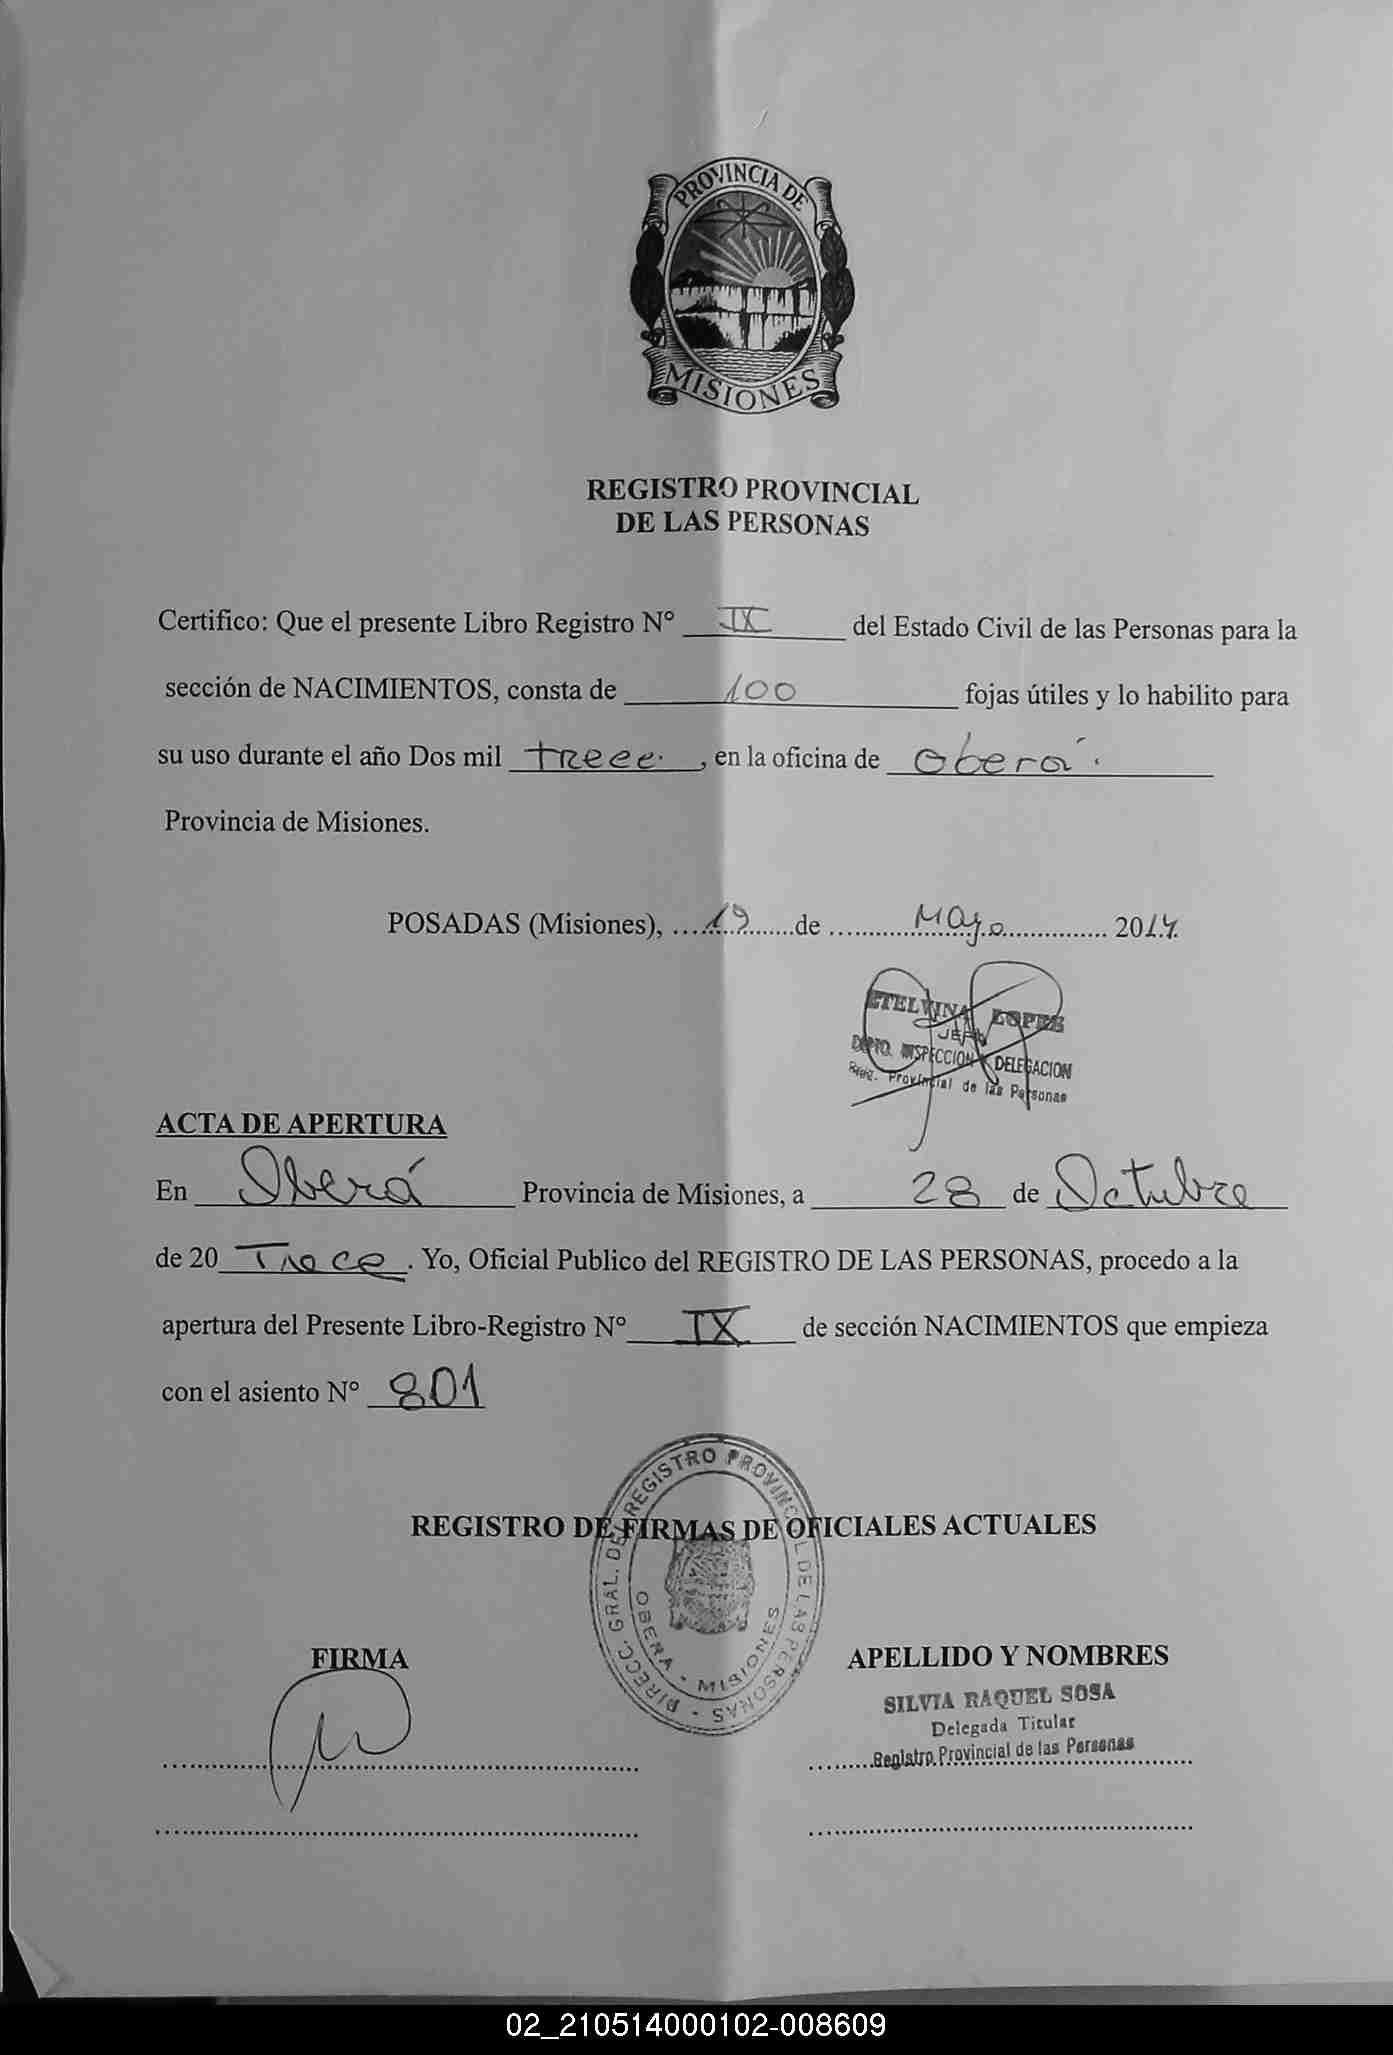 PROVINCIA DE
MISIONES
REGISTRO PROVINCIAL
DE LAS PERSONAS
Certifico: Que el presente Libro Registro N° IX del Estado Civil de las Personas para la
sección de NACIMIENTOS, consta de 100 fojas útiles y lo habilito para
su uso durante el año Dos mil trece. , en la oficina de Oberá.
Provincia de Misiones.
POSADAS (Misiones), ....19.......de ........Mayo............... 2014.
ETELVINA LOPES
JEFE
DPTO. INSPECCION Y DELEGACION
Reg. Provincial de las Personas
ACTA DE APERTURA
En Oberá Provincia de Misiones, a 28 de Octubre
de 20 Trece. Yo, Oficial Publico del REGISTRO DE LAS PERSONAS, procedo a la
apertura del Presente Libro-Registro N° IX de sección NACIMIENTOS que empieza
con el asiento N° 801
DIRECC. GRAL. DEL REGISTRO PROVINCIAL DE LAS PERSONAS
OBERA - MISIONES
REGISTRO DE FIRMAS DE OFICIALES ACTUALES
FIRMA APELLIDO Y NOMBRES
SILVIA RAQUEL SOSA
Delegada Titular
Registro Provincial de las Personas
02_210514000102-008609